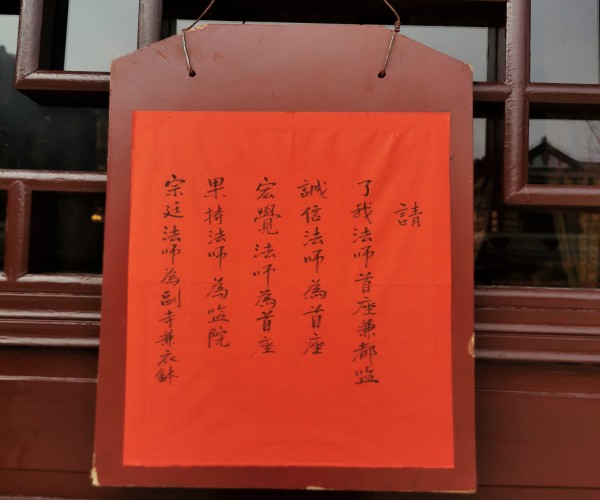 請
了我法师首座兼都监
誠信法师為首座
宏覺法师為首座
果持法师為监院
宗廷法师為副寺兼衣鉢